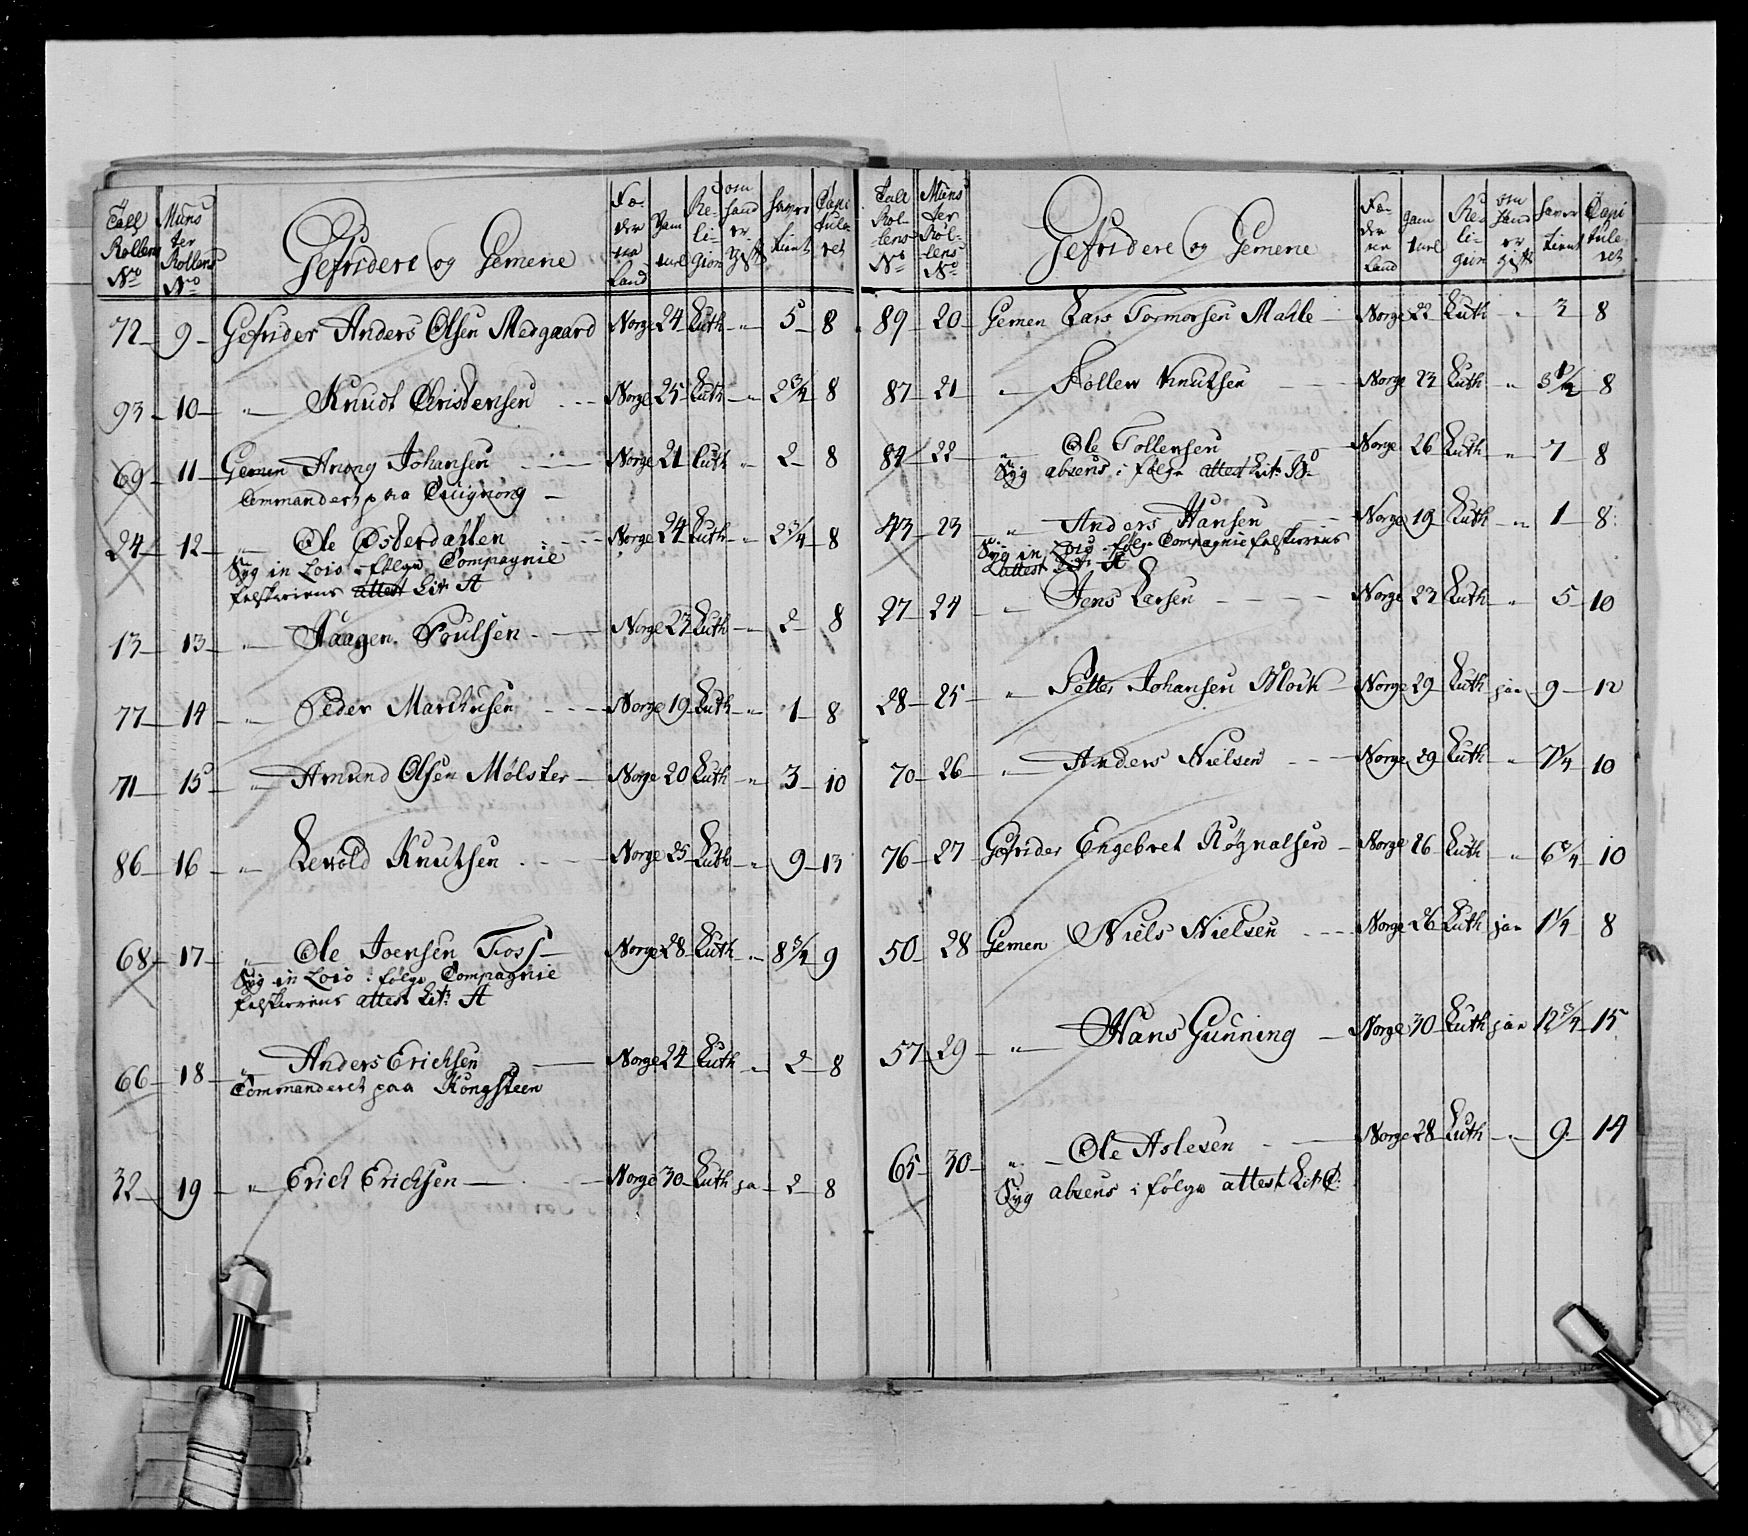 Tall Rollens No | Munster Rollens No | Gefridere og Gemene | Fæderneland | Gammel | Religion | om hand er gift | haver tient | Capituleret
72 9 Gefrider Anders Olsen Medgaard Norge 24 Luth „ 5 8
93 10 „ Knudt Christensen Norge 25 Luth „ 2 3/4 8
69 11 Gemen Johansen Norge 21 Luth „ 2 8
Commandert paa
24 12 „ Ole Østerdahlen Norge 24 Luth „ 2 3/4 8
Syg in Loio i følge Compagnie
felskerens attest Litr A
13 13 „ Haagen Poulsen Norge 23 Luth „ 2 8
77 14 „ Peder Marthusen Norge 19 Luth „ 1 8
71 15 „ Amund Olsen Mølster Norge 20 Luth „ 3 10
86 16 „ Lewold Knutsen Norge 25 Luth „ 9 13
68 17 „ Ole Joensen Foss Norge 28 Luth „ 8 3/4 9
Syg in Loio i følge Compagnie
felskerens attest Litr A
66 18 „ Anders Erichsen Norge 24 Luth „ 2 8
Commanderet paa Kongsteen
32 19 „ Erich Erichsen Norge 30 Luth ja 2 8
Tall Rollens No | Munster Rollens No | Gefridere og Gemene | Fæderneland | Gammel | Religion | om hand er gift | haver tient | Capituleret
89 20 Gemen Lars Tormorsen Mahle Norge 22 Luth „ 3 8
87 21 „ Tollew Knutsen Norge 23 Luth „ 3 1/2 8
84 22 „ Ole Tollensen Norge 26 Luth „ 7 8
Syg absens i følge attest Litr B
43 23 „ Anders Hansen Norge 19 Luth „ 1 8
Syg in Loio i følge Compagnie felskerens
attest Litr A
27 24 „ Jens Larsen Norge 23 Luth „ 5 10
28 25 „ Petter Johansen Block Norge 29 Luth jaa 9 12
70 26 „ Anders Nielsen Norge 29 Luth „ 7 1/4 10
76 27 Gefrider Engebret Røgnalsen Norge 26 Luth „ 6 3/4 10
50 28 Gemen Niels Nielsen Norge 26 Luth jaa 1 1/4 8
57 29 „ Hans Gunning Norge 30 Luth jaa 12 3/4 15
65 30 „ Ole Aslesen Norge 28 Luth „ 9 14
Syg absens i følge attest Litr C